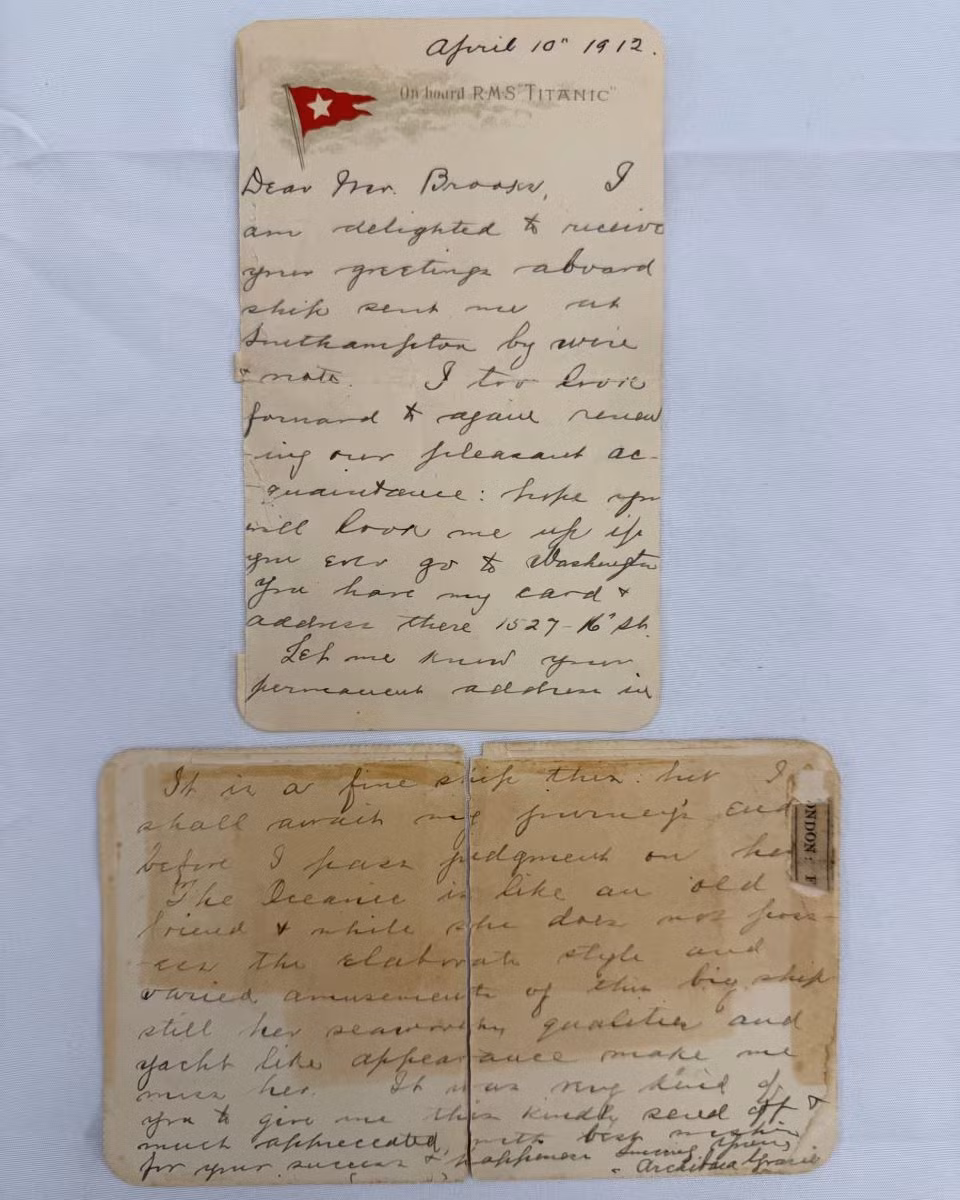 April 10" 1912.
On board R.M.S "TITANIC"
Dear Mr. Brooks, I
am delighted to receive
your greetings aboard
ship sent me at
Southampton by wire
& note. I too look
forward to again renew
-ing our pleasant ac-
quaintance: hope you
will look me up if
you ever go to Washington
You have my card &
address there 1527-16" St.
Let me know your
permanent address in
It is a fine ship this: but I
shall await my journey's end
before I pass judgment on her
The Oceanic is like an old
friend & while she does not poss-
-ess the elaborate style and
varied amusements of this big ship
still her seaworthy qualities and
yacht like appearance make me
miss her. It was very kind of
you to give me this kindly send off &
much appreciated, with best wishes
for your success & happiness Sincerely yours
Archibald Gracie
ONDON: F